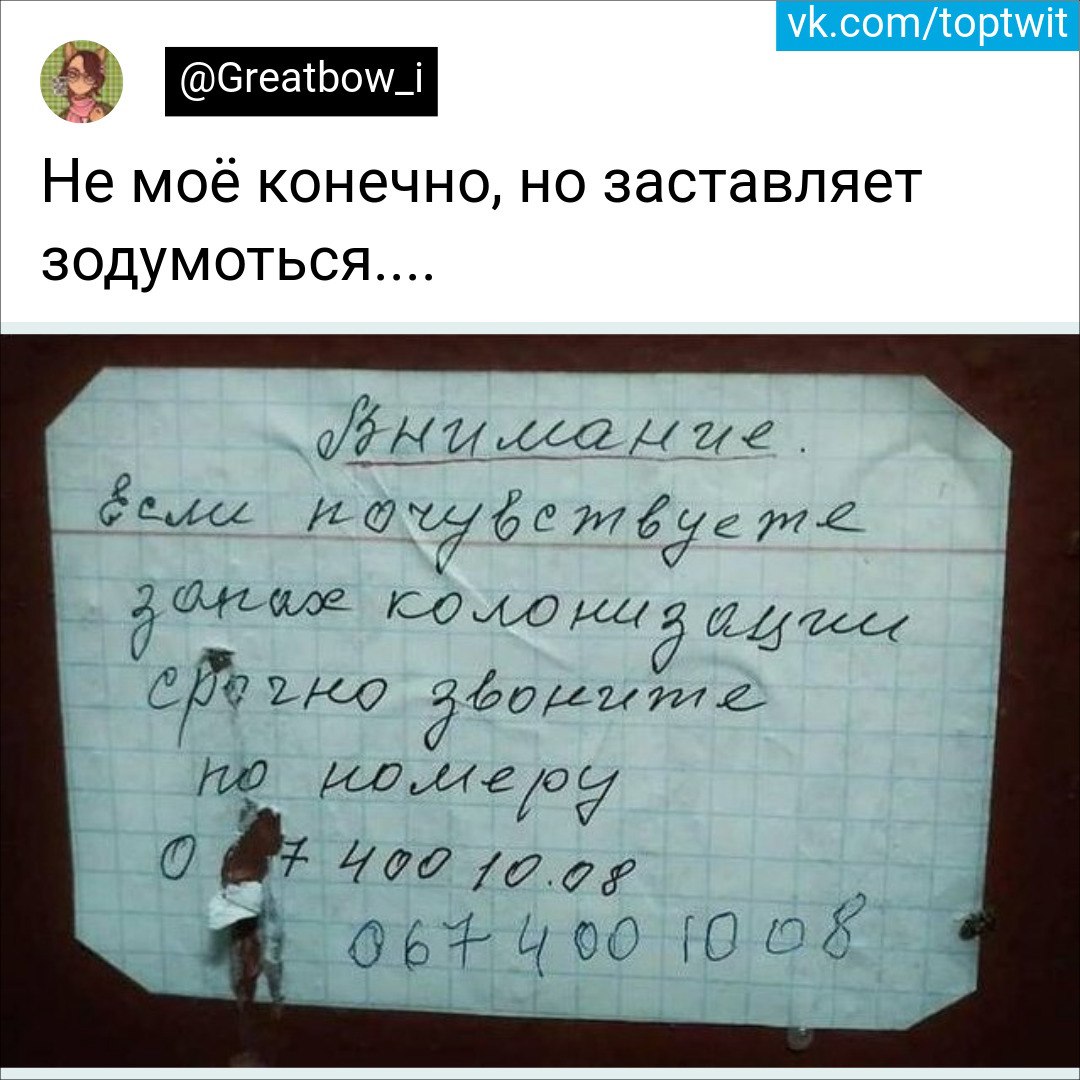 vk.com/toptwit
@Greatbow_i
Не моё конечно, но заставляет
зодумоться....
Внимание.
Если почувствуете
запах колонизации
срочно звоните
по номеру
0 7 400 10.08
067 400 10 08